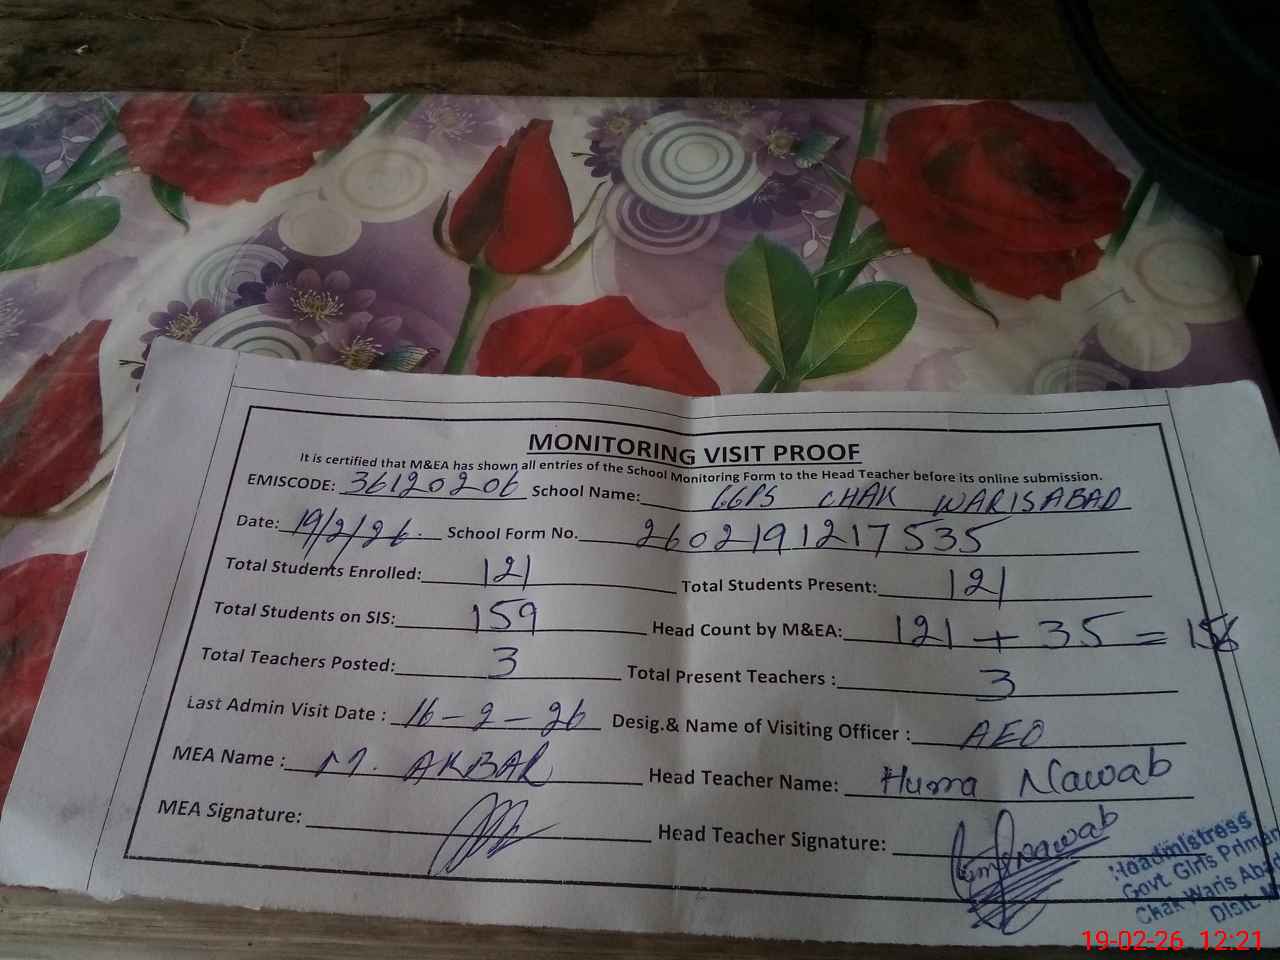 MONITORING VISIT PROOF
It is certified that M&EA has shown all entries of the School Monitoring Form to the Head Teacher before its online submission.
EMISCODE: 36120206 School Name: GGPS CHAK WARISABAD
Date: 19/2/26. School Form No. 2602191217535
Total Students Enrolled: 121 Total Students Present: 121
Total Students on SIS: 159 Head Count by M&EA: 121 + 35 = 156
Total Teachers Posted: 3 Total Present Teachers : 3
Last Admin Visit Date : 16-2-26 Desig.& Name of Visiting Officer : AEO
MEA Name : M. AKBAR Head Teacher Name: Huma Nawab
MEA Signature: Head Teacher Signature: nawab
Headmistress
Govt. Girls
Chak Waris
Distt.
19-02-26 12:21